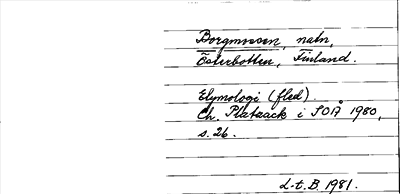 Borgmossen, natn,
Österbotten, Finland.
Etymologi (fled).
Ch. Platzack i SOÅ 1980,
s. 26.
L-t. B. 1981.